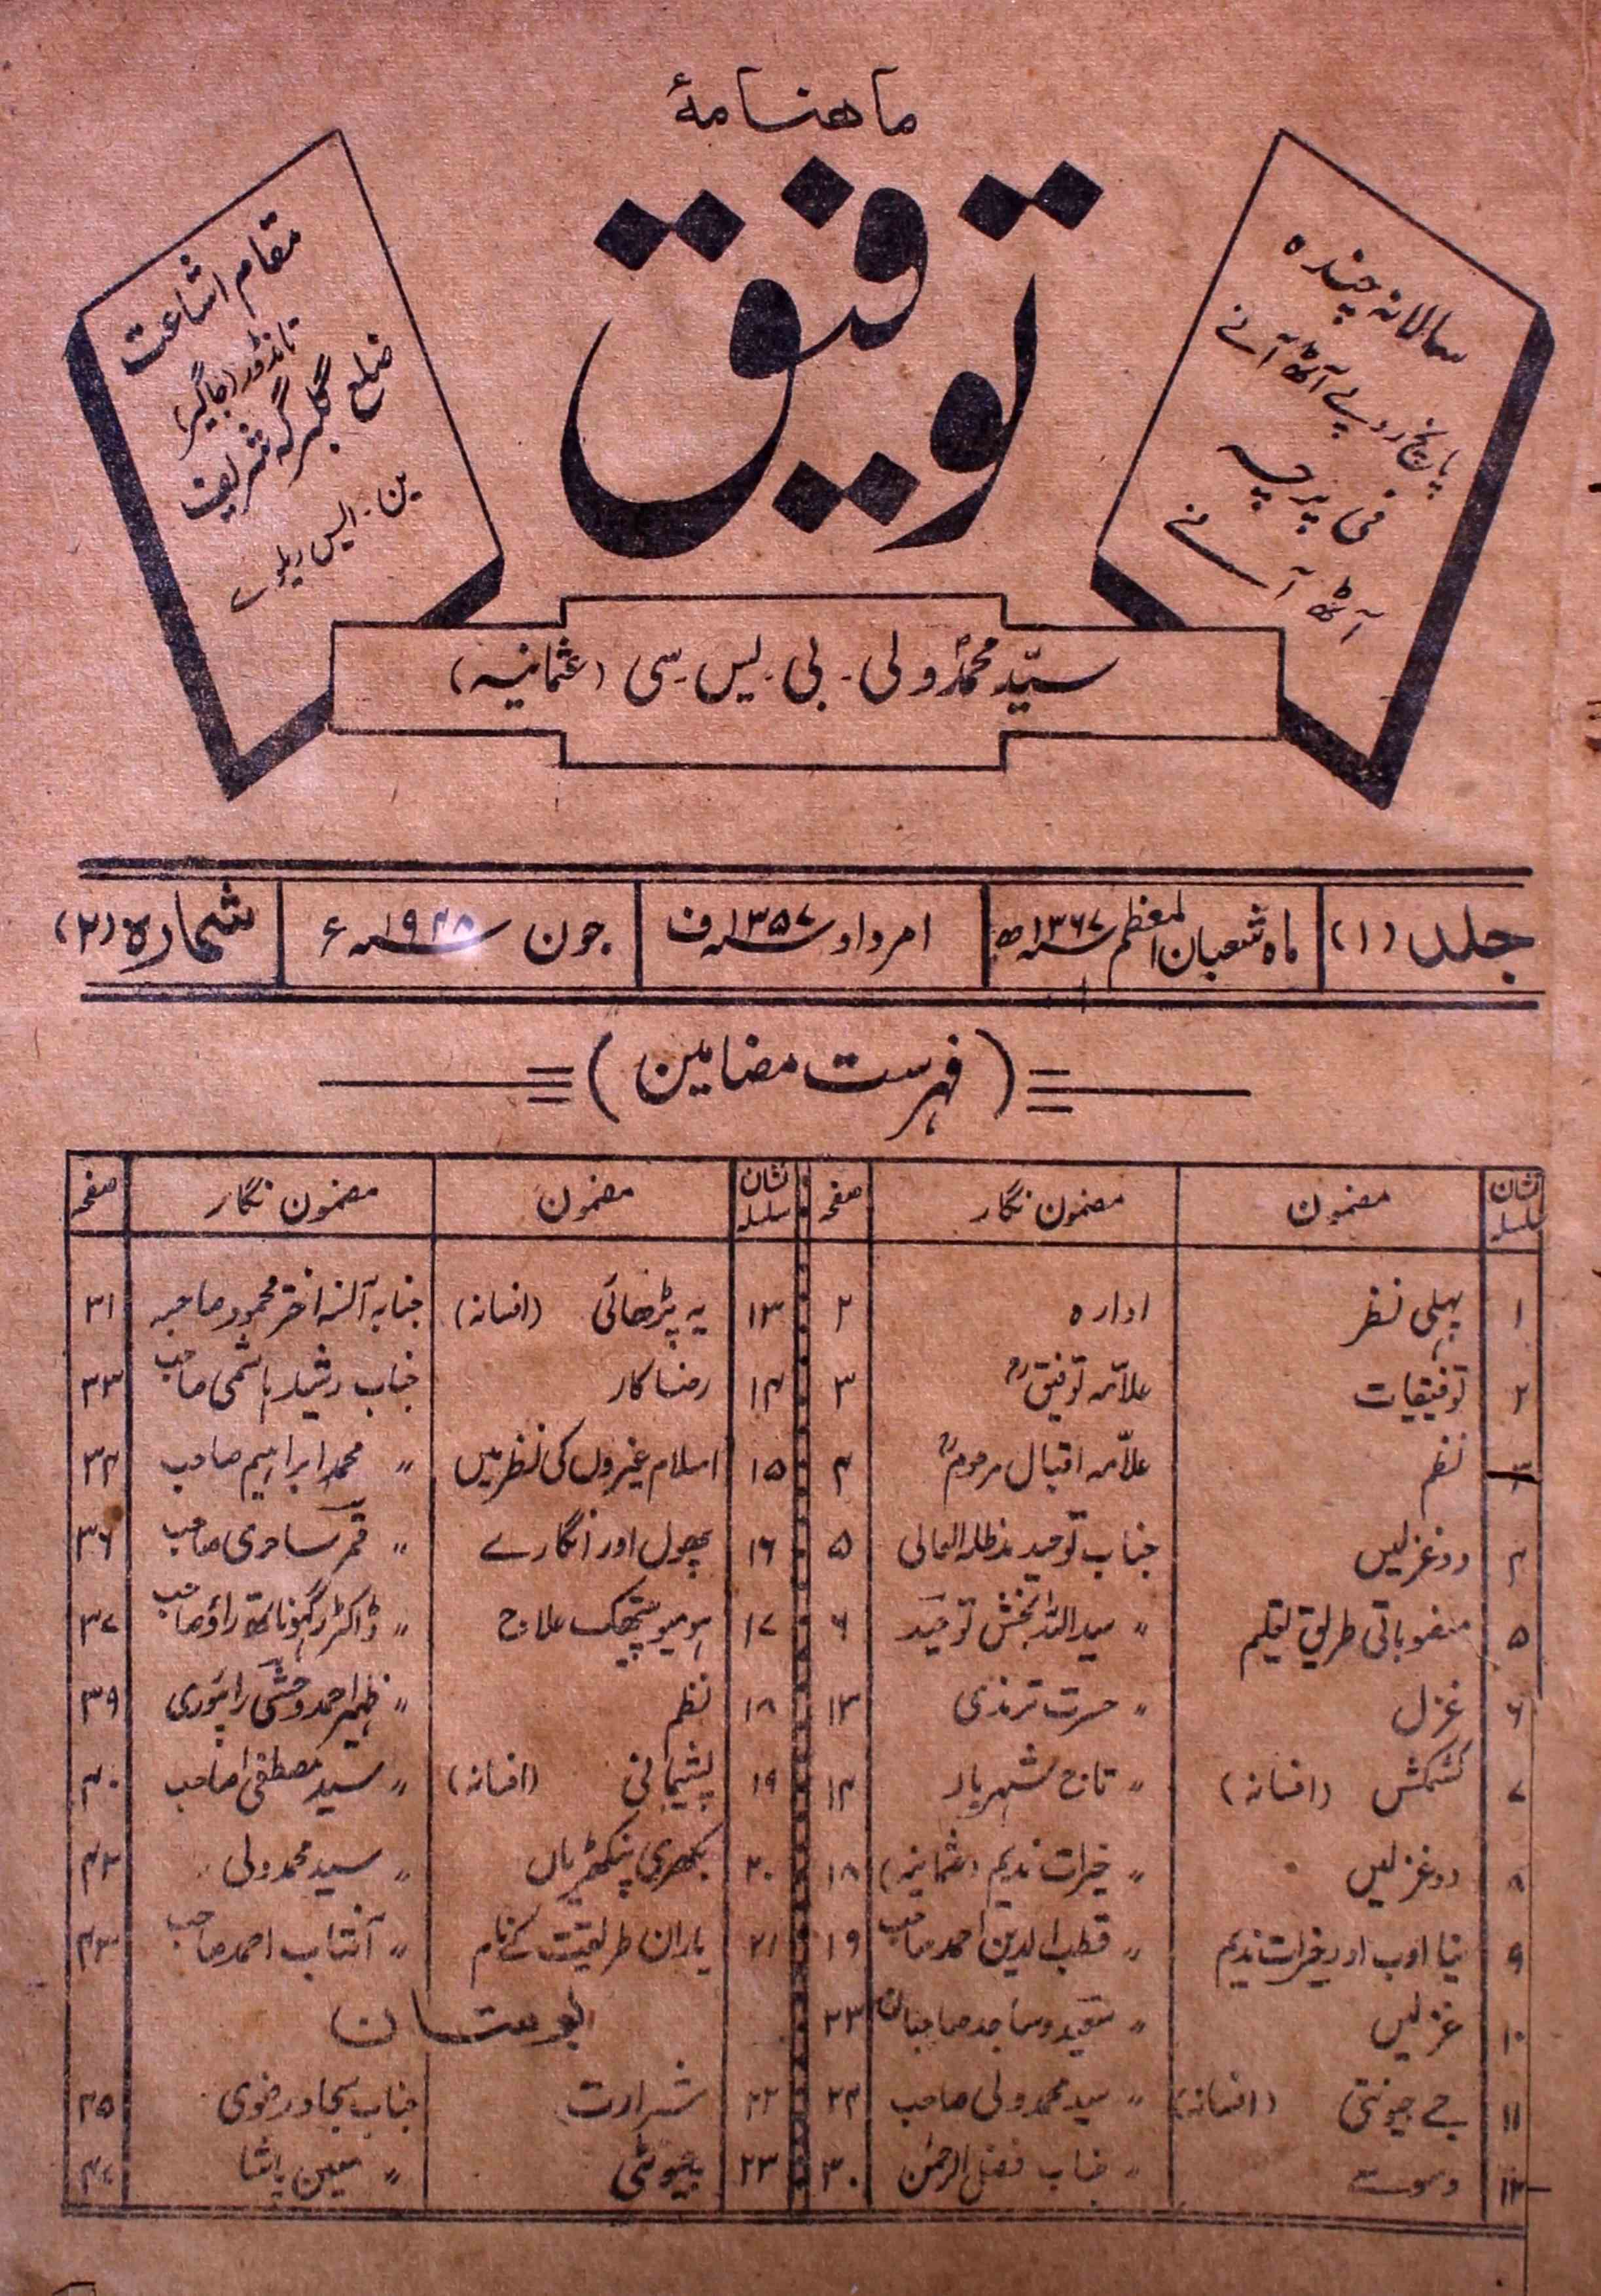 ماهنامۂ
توفیق
سالانہ چندہ
پانچ روپے آٹھ آنے
فی پرچہ
آٹھ آنے
مقام اشاعت
تانڈور (جاگیر)
ضلع گلبرگہ شریف
ین۔ ایس ریلوے
سیّد محمد ولی۔ بی۔ یس۔ سی (عثمانیہ)
جلد (۱) ماہ شعبان المعظم ۱۳۶۷ھ امرداد ۱۳۵۷ف جون ۱۹۴۸ء شمارہ (۲)
(فہرست مضامین)
نشان سلسلہ مضمون مضمون نگار صفحہ
۱ پہلی نظر ادارہ ۲
۲ توفیقیات علامہ توفیقؒ ۳
۳ نظم علامہ اقبال مرحومؒ ۴
۴ دو غزلیں جناب توحید مدظلہ العالی ۵
۵ منصوباتی طریق تعلیم 〃 سید اللہ بخش توحید ۶
۶ غزل 〃 حسرت ترمذی ۱۳
۷ کشمکش (افسانہ) 〃 تاج شہریار ۱۴
۸ دو غزلیں 〃 خیرات ندیم (عثمانیہ) ۱۸
۹ نیا ادب اور خیرات ندیم 〃 قطب الدین احمد صاحب ۱۹
۱۰ غزلیں 〃 سعید و ساجد صاحبان ۲۳
۱۱ جے جیونتی (افسانہ) 〃 سید محمد ولی صاحب ۲۴
۱۲ وسوسے 〃 جناب فضل الرحمٰن ۳۰
نشان سلسلہ مضمون مضمون نگار صفحہ
۱۳ یہ پڑھائی (افسانہ) جنابہ آنسہ اختر محمود صاحبہ ۳۱
۱۴ رضاکار جناب رشید ہاشمی صاحب ۳۳
۱۵ اسلام غیروں کی نظر میں 〃 محمد ابراہیم صاحب ۳۴
۱۶ پھول اور انگارے 〃 قمر ساحری صاحب ۳۶
۱۷ ہومیوپیتھک علاج 〃 ڈاکٹر رگھوناتھ راؤ صاحب ۳۷
۱۸ نظم 〃 ظہیر احمد وحشی رائچوری ۳۹
۱۹ پشیمانی (افسانہ) 〃 سید مصطفی صاحب ۴۰
۲۰ بکھری پنکھڑیاں 〃 سید محمد ولی ۴۲
۲۱ یاران طریقت کے نام 〃 آفتاب احمد صاحب ۴۳
بوستان
۲۲ شرارت جناب سجاد رضوی ۴۵
۲۳ چیونٹی 〃 معین پاشا ۴۷